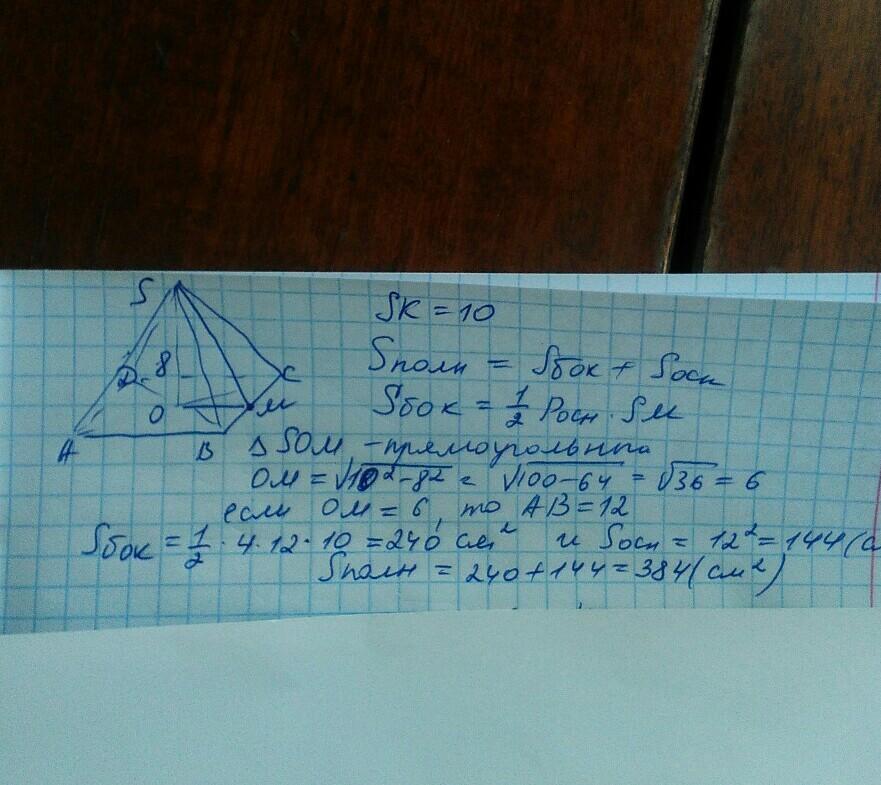 S
8
D
C
O
M
A
B
SK = 10
Sполн = Sбок + Sосн
Sбок = 1/2 Pосн · SM
Δ SOM - прямоугольный
OM = √10²-8² = √100-64 = √36 = 6
если OM = 6, то AB = 12
Sбок = 1/2 · 4 · 12 · 10 = 240 см² и Sосн = 12² = 144 (с
Sполн = 240 + 144 = 384 (см²)